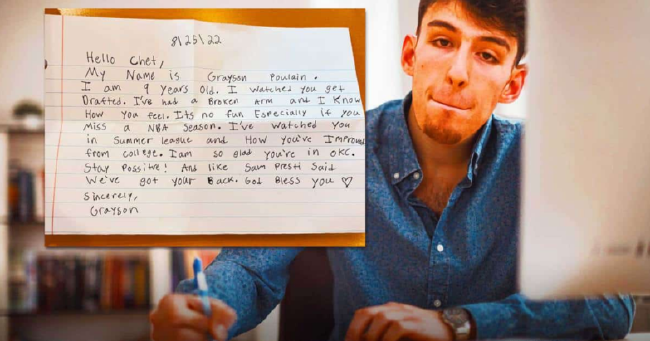 8|25|22
Hello Chet,
My Name is Grayson Poulain.
I am 9 years Old. I watched you get
Drafted. I've had a Broken Arm and I Know
How you feel. Its no fun Especially if you
Miss a NBA Season. I've watched you
in Summer league and How you've Improved
from college. I am so glad you're in OKC.
Stay Possitive! And like Sam Presti Said
We've got your Back. God Bless you ♡
Sincerely,
Grayson